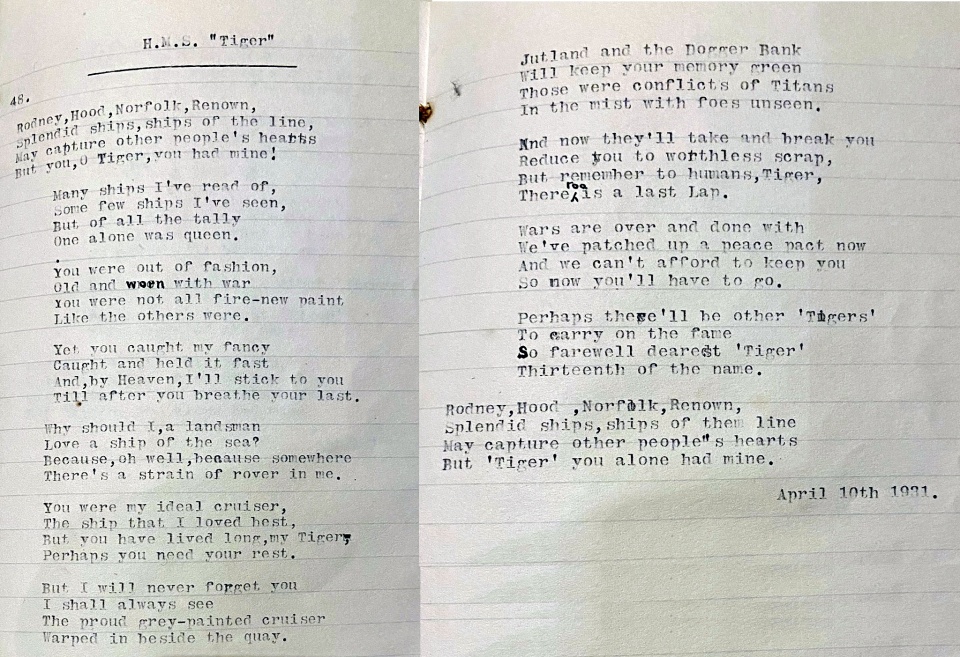 H.M.S. "Tiger"
48.
Rodney,Hood,Norfolk,Renown,
Splendid ships,ships of the line,
May capture other people's hearts
But you,O Tiger,you had mine!
Many ships I've read of,
Some few ships I've seen,
But of all the tally
One alone was queen.
You were out of fashion,
Old and worn with war
You were not all fire-new paint
Like the others were.
Yet you caught my fancy
Caught and held it fast
And,by Heaven,I'll stick to you
Till after you breathe your last.
Why should I,a landsman
Love a ship of the sea?
Because,oh well,because somewhere
There's a strain of rover in me.
You were my ideal cruiser,
The ship that I loved best,
But you have lived long,my Tiger,
Perhaps you need your rest.
But I will never forget you
I shall always see
The proud grey-painted cruiser
Warped in beside the quay.
Jutland and the Dogger Bank
Will keep your memory green
Those were conflicts of Titans
In the mist with foes unseen.
And now they'll take and break you
Reduce you to worthless scrap,
But remember to humans,Tiger,
There too is a last Lap.
Wars are over and done with
We've patched up a peace pact now
And we can't afford to keep you
So now you'll have to go.
Perhaps there'll be other 'Tigers'
To carry on the fame
So farewell dearest 'Tiger'
Thirteenth of the name.
Rodney,Hood ,Norfolk,Renown,
Splendid ships,ships of them line
May capture other people"s hearts
But 'Tiger' you alone had mine.
April 10th 1931.